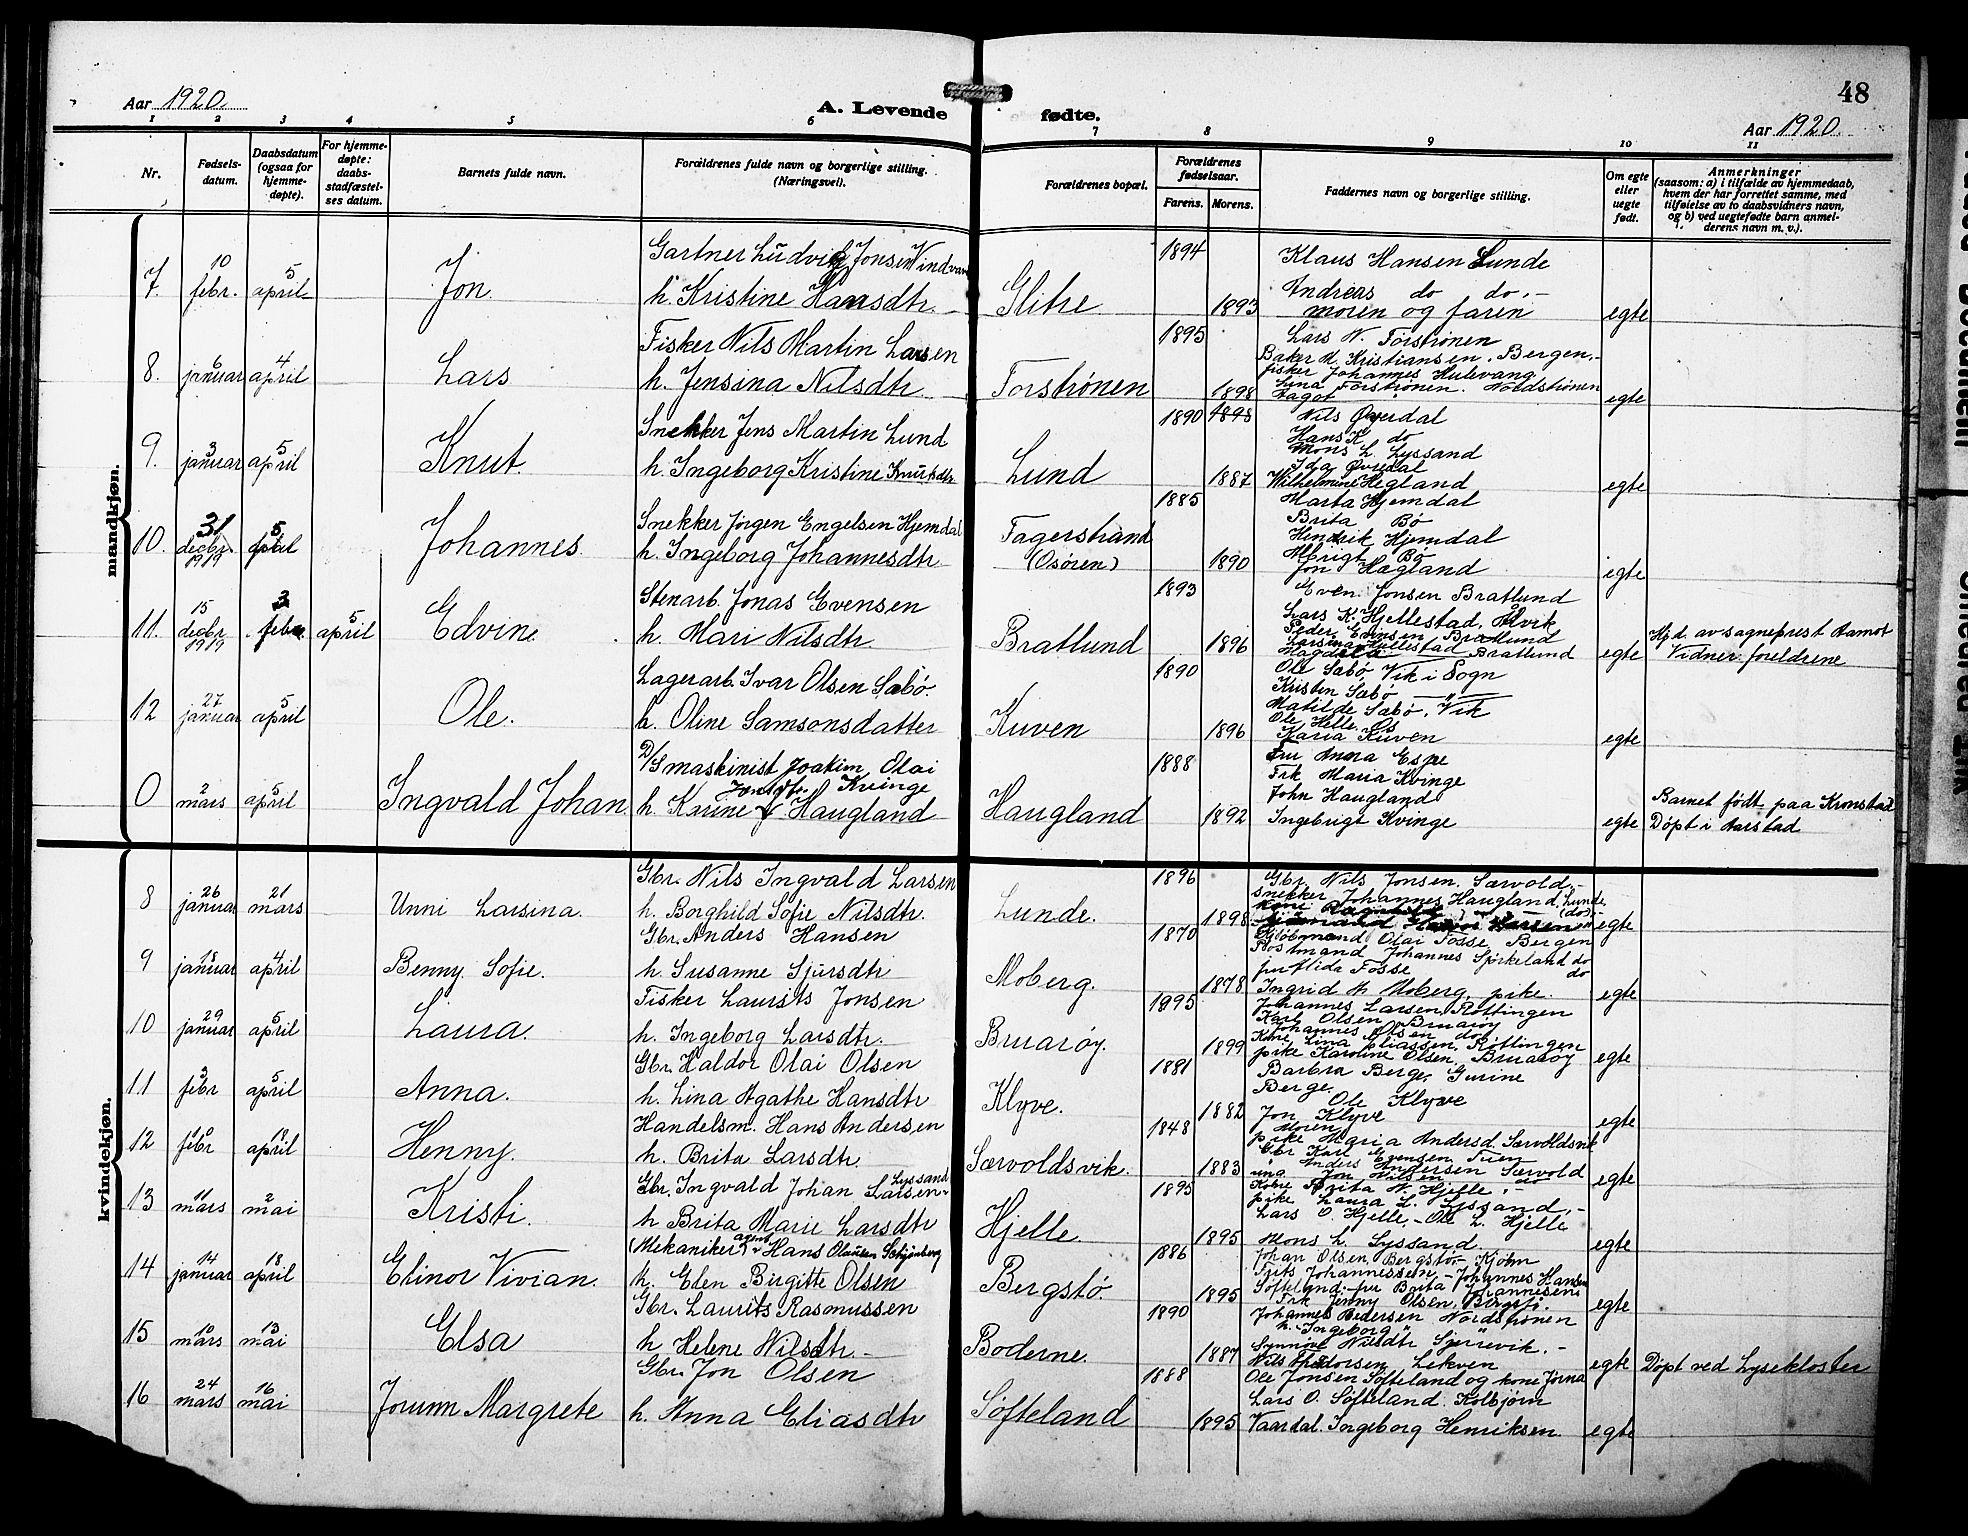 48
Aar 1920.
A. Levende fødte.
Aar 1920.
1 2 3 4 5 6 7 8 9 10 11
Nr.
Fødsels-
datum.
Daabsdatum
(ogsaa for
hjemme-
døpte).
For hjemme-
døpte:
daabs-
stadfæstel-
ses datum.
Barnets fulde navn.
Forældrenes fulde navn og borgerlige stilling.
(Næringsvei).
Forældrenes bopæl.
Forældrenes
fødselsaar.
Farens. Morens.
Faddernes navn og borgerlige stilling.
Om egte
eller
uegte
født.
Anmerkninger
(saasom: a) i tilfælde av hjemmedaab,
hvem der har forrettet samme, med
tilføielse av to daabsvidners navn,
og b) ved uegtefødte barn anmel-
derens navn m. v.).
mandkjøn.
7. 10 febr. 5 april Jon
Gartner Ludvig Jonsen
h. Kristine Hansdtr.
Glitre 1894 1893
Klaus Hansen Lunde
Andreas do do.
moren og faren
egte
8. 6 januar 4 april Lars
Fisker Nils Martin Larsen
h. Jensina Nilsdtr
Forstrønen 1895 1898
Lars N. Forstrønen
Baker M. Kristiansen. Bergen.
fisker Johannes Hulevang
Lina Forstrønen. Nordstrønen
egte
9. 3 januar 5 april Knut.
Snekker Jens Martin Lund
h. Ingeborg Kristine Knutsdtr
Lund 1890 1898 1887
Nils Øvredal
Hans K. do
Mons L. Lyssand
Ida Øvredal
Wilhelmine Hegland
egte
10. 31 decbr. 1919 5 april Johannes
Snekker Jørgen Engelsen Hjemdal
h. Ingeborg Johannesdtr.
Fagerstrand
(Osøren) 1885 1890
Marta Hjemdal
Brita Bø
Hendrik Hjemdal
Bø
Jon Hægland
egte
11. 15 decbr 1919 3 febr. 5 april Edvin
Stenarb. Jonas Evensen
h. Mari Nilsdtr.
Bratlund 1893 1896
Even Jonsen Bratlund
Lars K. Hjellestad,
Peder Bratlund
Bratlund
egte
Hjd. av sogneprest Aamot
Vidner foreldrene
12 27 januar 5 april Ole.
Lagerarb. Ivar Olsen Sæbø.
h. Oline Samsonsdatter
Kuven 1890 1896
Ole Sæbø, Vik i Sogn
Kristen Sæbø — " —
Matilde Sæbø, Vik
Ole Helle, Os
Maria Kuven
egte
0 2 mars 5 april Ingvald Johan
D/S maskinist Joakim Olai
Kvinge
h. Karine Haugland
Haugland 1888 1892
Fru Anna Espe
Frk Maria Kvinge
John Haugland
Ingebrigt Kvinge
egte
Barnet født paa Kronstad
Døpt i Aarstad
kvindekjøn.
8 26 januar 21 mars Unni Larsina.
Gbr. Nils Ingvald Larsen
h. Borghild Sofie Nilsdtr.
Lunde. 1896 1898
Gbr. Nils Jonsen Sørvold.
snekker Johannes Haugland, Lunde
egte
9 januar 4 april Benny Sofie.
Gbr. Anders Hansen
h. Susanne Sjursdtr
Moberg. 1870 1878
Olai Fosse Bergen
Postmand Johannes Spirkeland do
fru Alida Fosse do
Ingrid H. Moberg, pike.
egte
10 29 januar 5 april Laura.
Fisker Laurits Jonsen
h. Ingeborg Larsdtr.
Bruarøy. 1895 1899
Johannes Larsen Røttingen
Karl Olsen Bruarøy
Johannes Olsen do
Kone Lina Eliassen, Røttingen
pike Karoline Olsen, Bruarøy
egte
11 3 febr 5 april Anna.
Gbr. Haldor Olai Olsen
h. Lina Agathe Hansdtr
Klyve. 1881 1882
Barbra Berge, Gurine
Berge.
Ole Klyve
Jon Klyve
Moren
egte
12 10 febr april Henny.
Handelsm. Hans Andersen
h. Brita Larsdtr.
Særvoldsvik. 1848 1883
pike Maria Andersd.
Gbr Karl Evensen Tuen
Anders Andersen Særvold
Jon Nilsen
egte
13 11 mars 2 mai Kristi.
Gbr. Ingvald Johan Larsen Lyssand
h Brita Marie Larsdtr
Hjelle. 1895 1895
Kone Brita N. Hjelle.
pike Laura L. Lyssand.
Lars O. Hjelle, Ole L. Hjelle
Mons L. Lyssand.
egte
14 14 januar 18 april Elinor Vivian.
(Mekaniker) agent Hans Olausen
h. Elen Birgitte Olsen
Bergstø. 1886 1895
Johan Olsen Bergstø
Johannessen Johannes Hansen
Søfteland, fru Brita Johannesen
Frk Jenny Olsen, Bergstø.
egte
15 10 mars 13 mai Elsa
Gbr. Laurits Rasmussen
h Helene Nilsdtr.
Boderne. 1890 1887
Johannes Pedersen Nordstrønen
h. Ingeborg "
Synnøve Nilsdtr
Nils Lekven
egte Døpt ved Lysekloster
16 24 mars 16 mai Jorunn Margrete
Gbr. Jon Olsen
h. Anna Eliasdtr
Søfteland 1888 1895
Ole Jonsen Søfteland og kone
Lars O. Søfteland. Kolbjørn
Vaardal. Ingeborg Henriksen.
egte